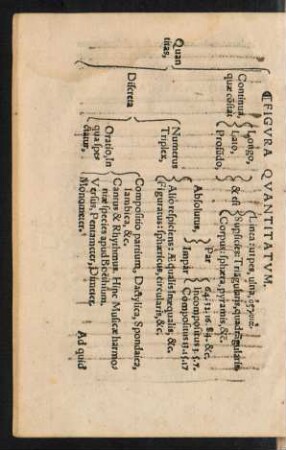 ¶ FIGVRA QVANTITATVM.
Quan
titas,
Continua,
quæ cõstat
Longo,
Lato,
Profũdo,
& est
Linea
Suplicies: Triãgularis, quadrãgularis
Corpus: sphæra, pyramis, &c.
Discreta
Numerus
Triplex,
Absolutus,
Par
Impar
&c.
Incompositus 3. 5. 7.
Compositus
Alio respiciens: Æqualis Inæqualis, &c.
Figuratus: sphæricus, circularis, &c.
Oratio, In
qua spe
ctatur,
Compositio partium, Dactylica, Spondaica,
Iambica, &c.
Cantus & Rhythmus. Hinc Musicæ harmo
niæ species apud Boëthium.
Versus, Pentameter, Dimeter,
Monometer.
Ad quid